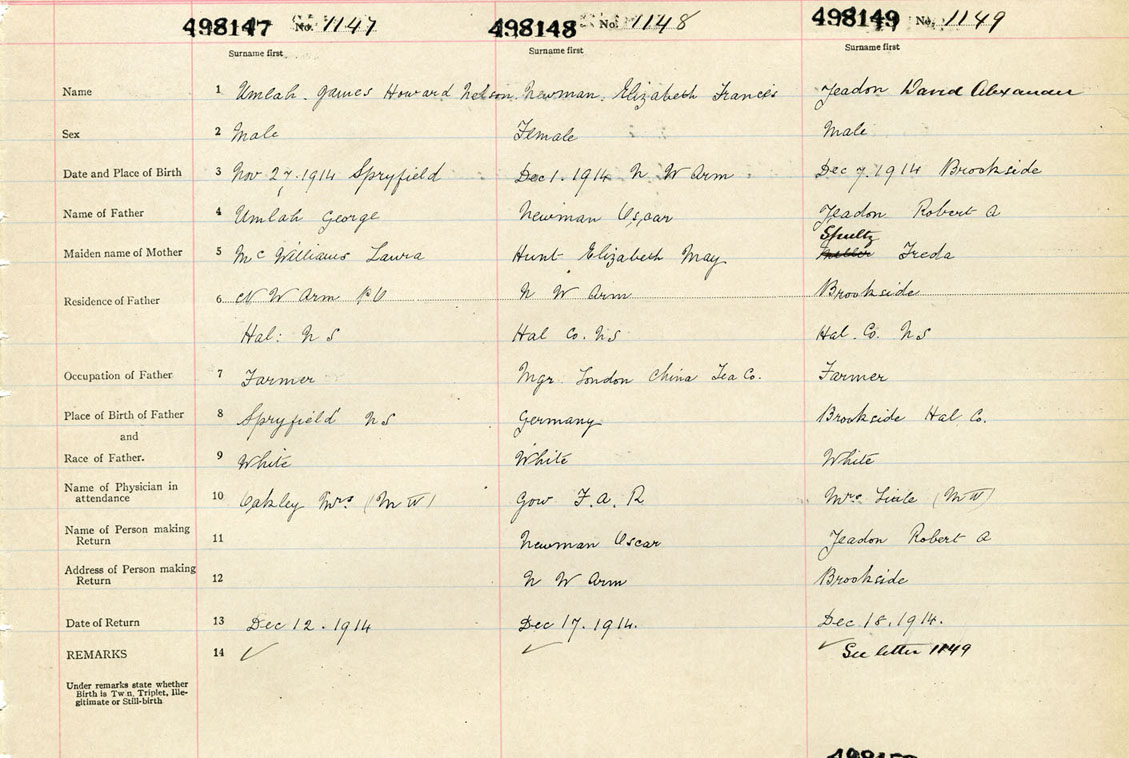 498147 No. 1147 498148 No. 1148 498149 No. 1149
Surname first Surname first Surname first
Name 1 Umlah. James Howard Nelson. Newman. Elizabeth Francis Yeadon David Alexander
Sex 2 Male Female Male
Date and Place of Birth 3 Nov 27.1914 Spryfield Dec 1. 1914 N W Arm Dec 7. 1914 Brookside
Name of Father 4 Umlah George Newman Oscar Yeadon Robert A
Shultz
Maiden name of Mother 5 Mc Williams Laura Hunt Elizabeth May Freda
Residence of Father 6 N W Arm P O N W Arm Brookside
Hal: N S Hal Co. N S Hal. Co. N S
Occupation of Father 7 Farmer Mgr. London China Tea Co. Farmer
Place of Birth of Father 8 Spryfield N S Germany Brookside Hal Co.
and
Race of Father. 9 White White White
Name of Physician in
attendance 10 Oakley Mrs. (M W) Gow F. A. R Mrs. (M W)
Name of Person making
Return 11 Newman Oscar Yeadon Robert A
Address of Person making
Return 12 N W Arm Brookside
Date of Return 13 Dec 12. 1914 Dec 17. 1914. Dec 18. 1914.
REMARKS 14 ✓ ✓ ✓ See letter 1149
Under remarks state whether
Birth is Twin, Triplet, Ille-
gitimate or Still-birth